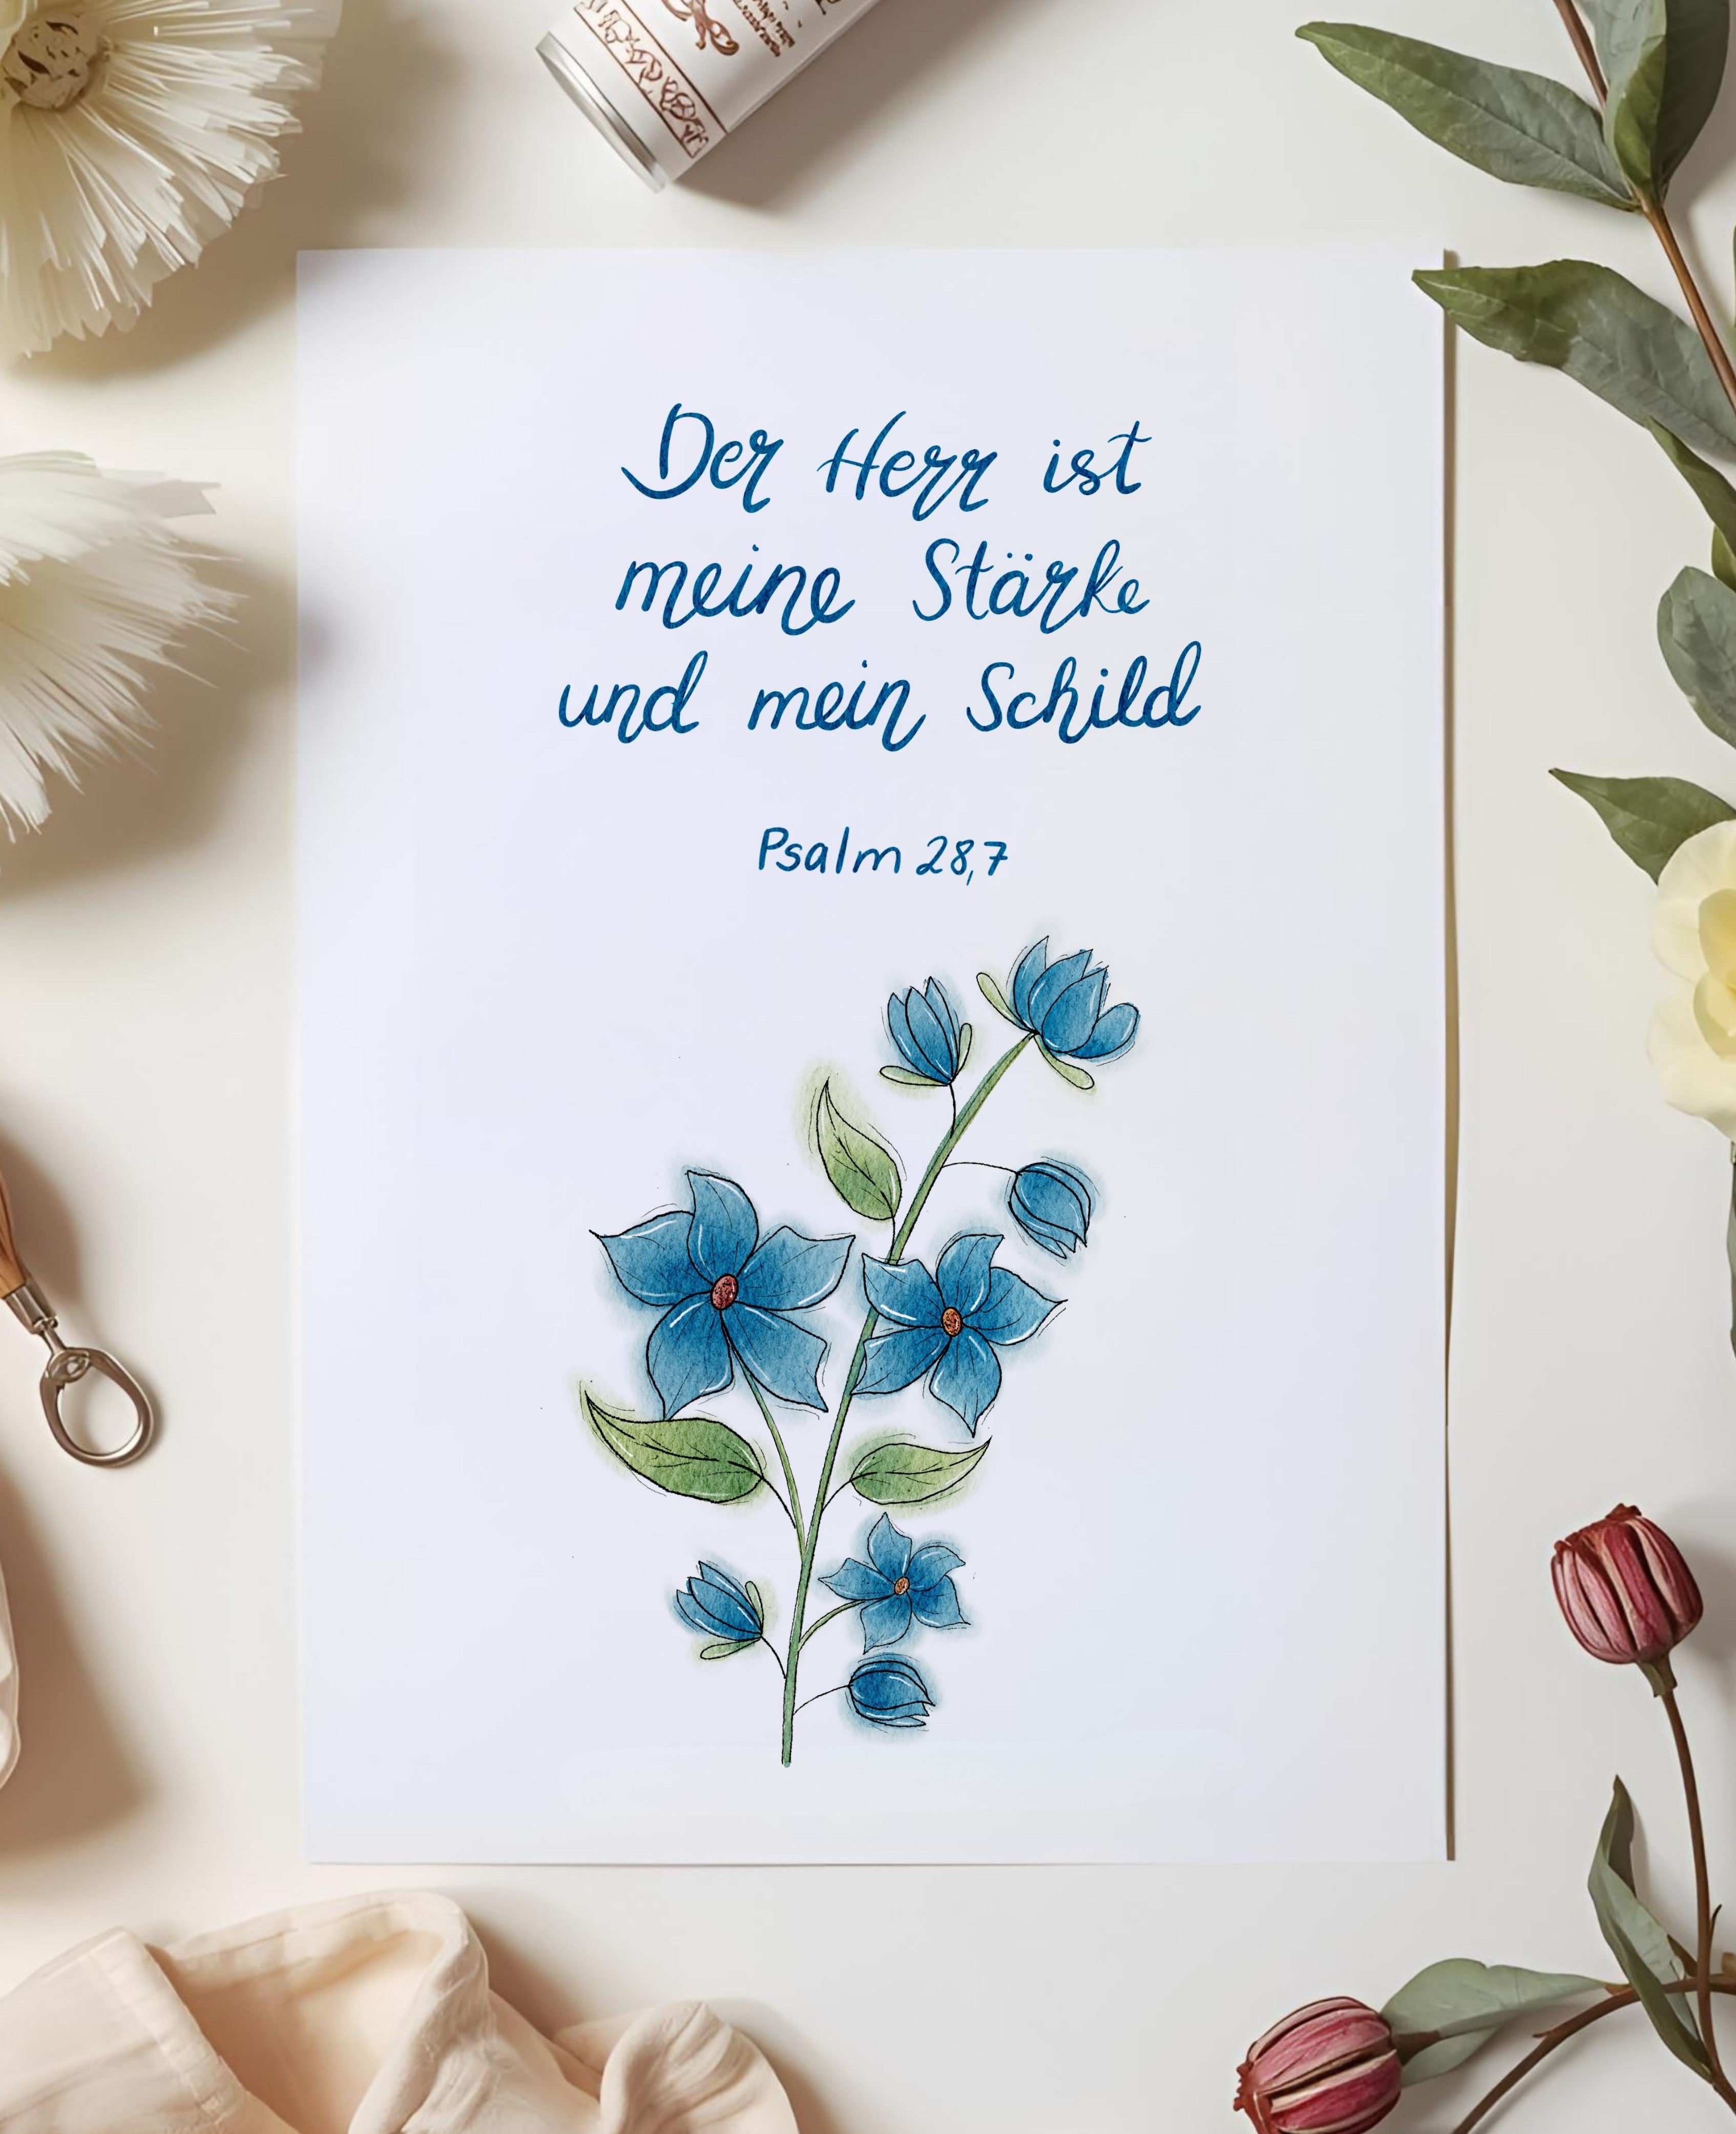 Der Herr ist
meine Stärke
und mein Schild
Psalm 28,7